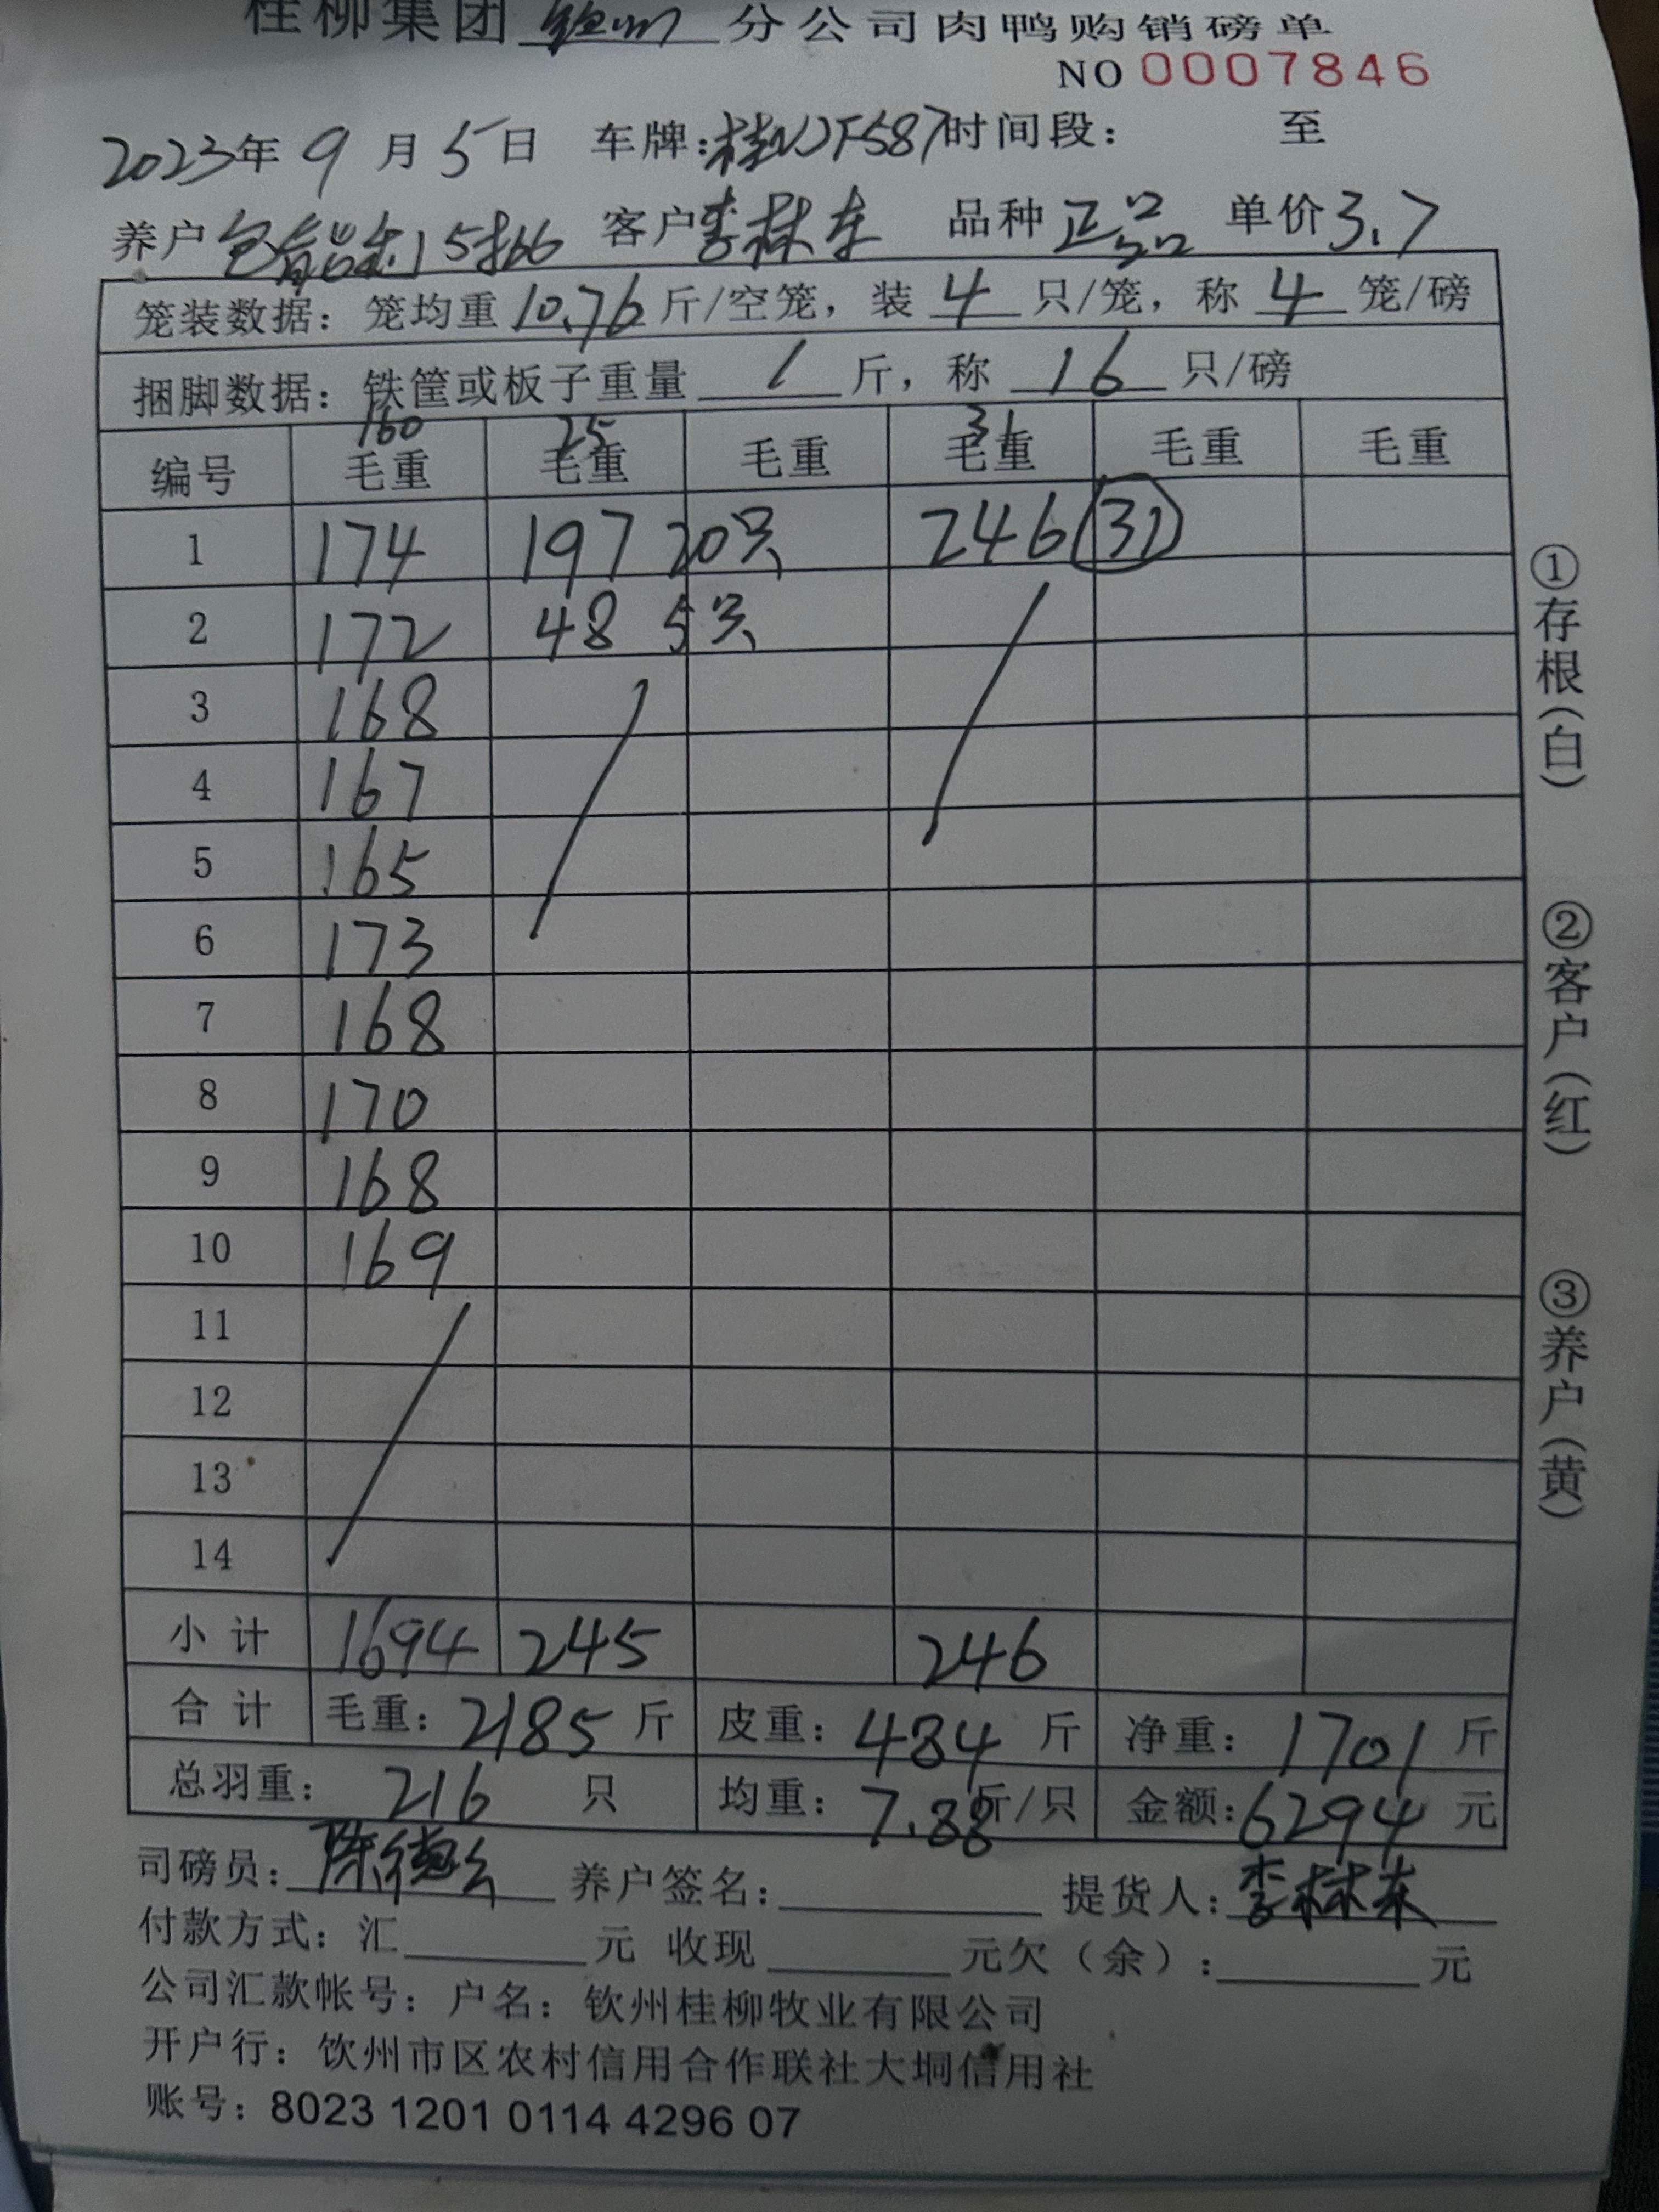 桂柳集团钦州分公司肉鸭购销磅单
NO 0007846
2023年9月5日 车牌:桂NJF587时间段: 至
养户 客户李林东 品种正品 单价3.7
笼装数据: 笼均重10.76斤/空笼, 装4只/笼, 称4笼/磅
捆脚数据: 铁筐或板子重量/斤, 称16只/磅
160 25 31
编号 毛重 毛重 毛重 毛重 毛重 毛重
1 174 197 20只 246 (31)
2 172 48 5只
3 168
4 167
5 165
6 173
7 168
8 170
9 168
10 169
11
12
13
14
小计 1694 245 246
合计 毛重: 2185斤 皮重: 484斤 净重: 1701斤
总羽重: 216只 均重: 7.88斤/只 金额:6294元
司磅员: 养户签名: 提货人:李林东
付款方式: 汇 元 收现 元欠(余): 元
公司汇款帐号: 户名: 钦州桂柳牧业有限公司
开户行: 钦州市区农村信用合作联社大垌信用社
账号: 8023 1201 0114 4296 07
①存根(白)
②客户(红)
③养户(黄)